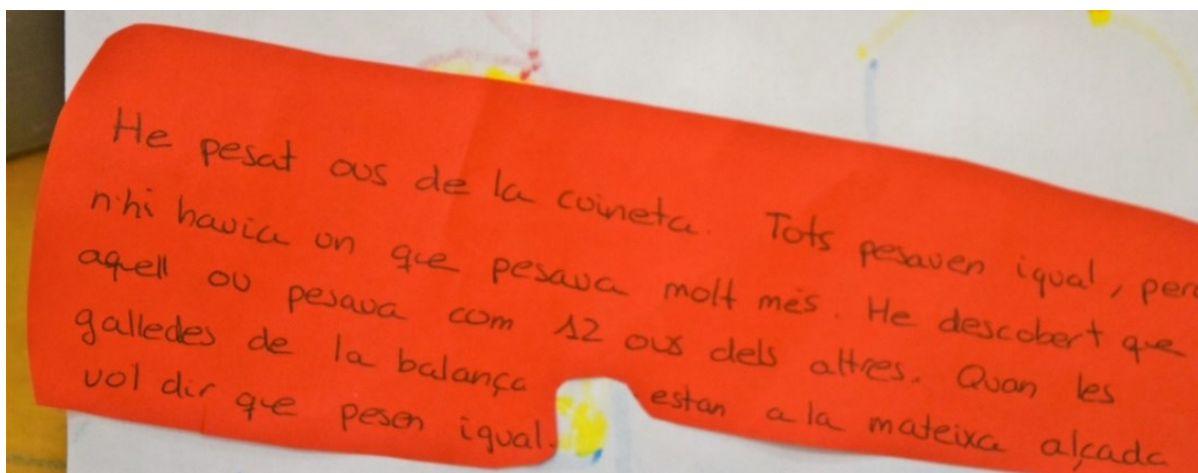 He pesat ous de la cuineta. Tots pesaven igual, però
n'hi havia un que pesava molt més. He descobert que
aquell ou pesava com 12 ous dels altres. Quan les
galledes de la balança estan a la mateixa alçada
vol dir que pesen igual.